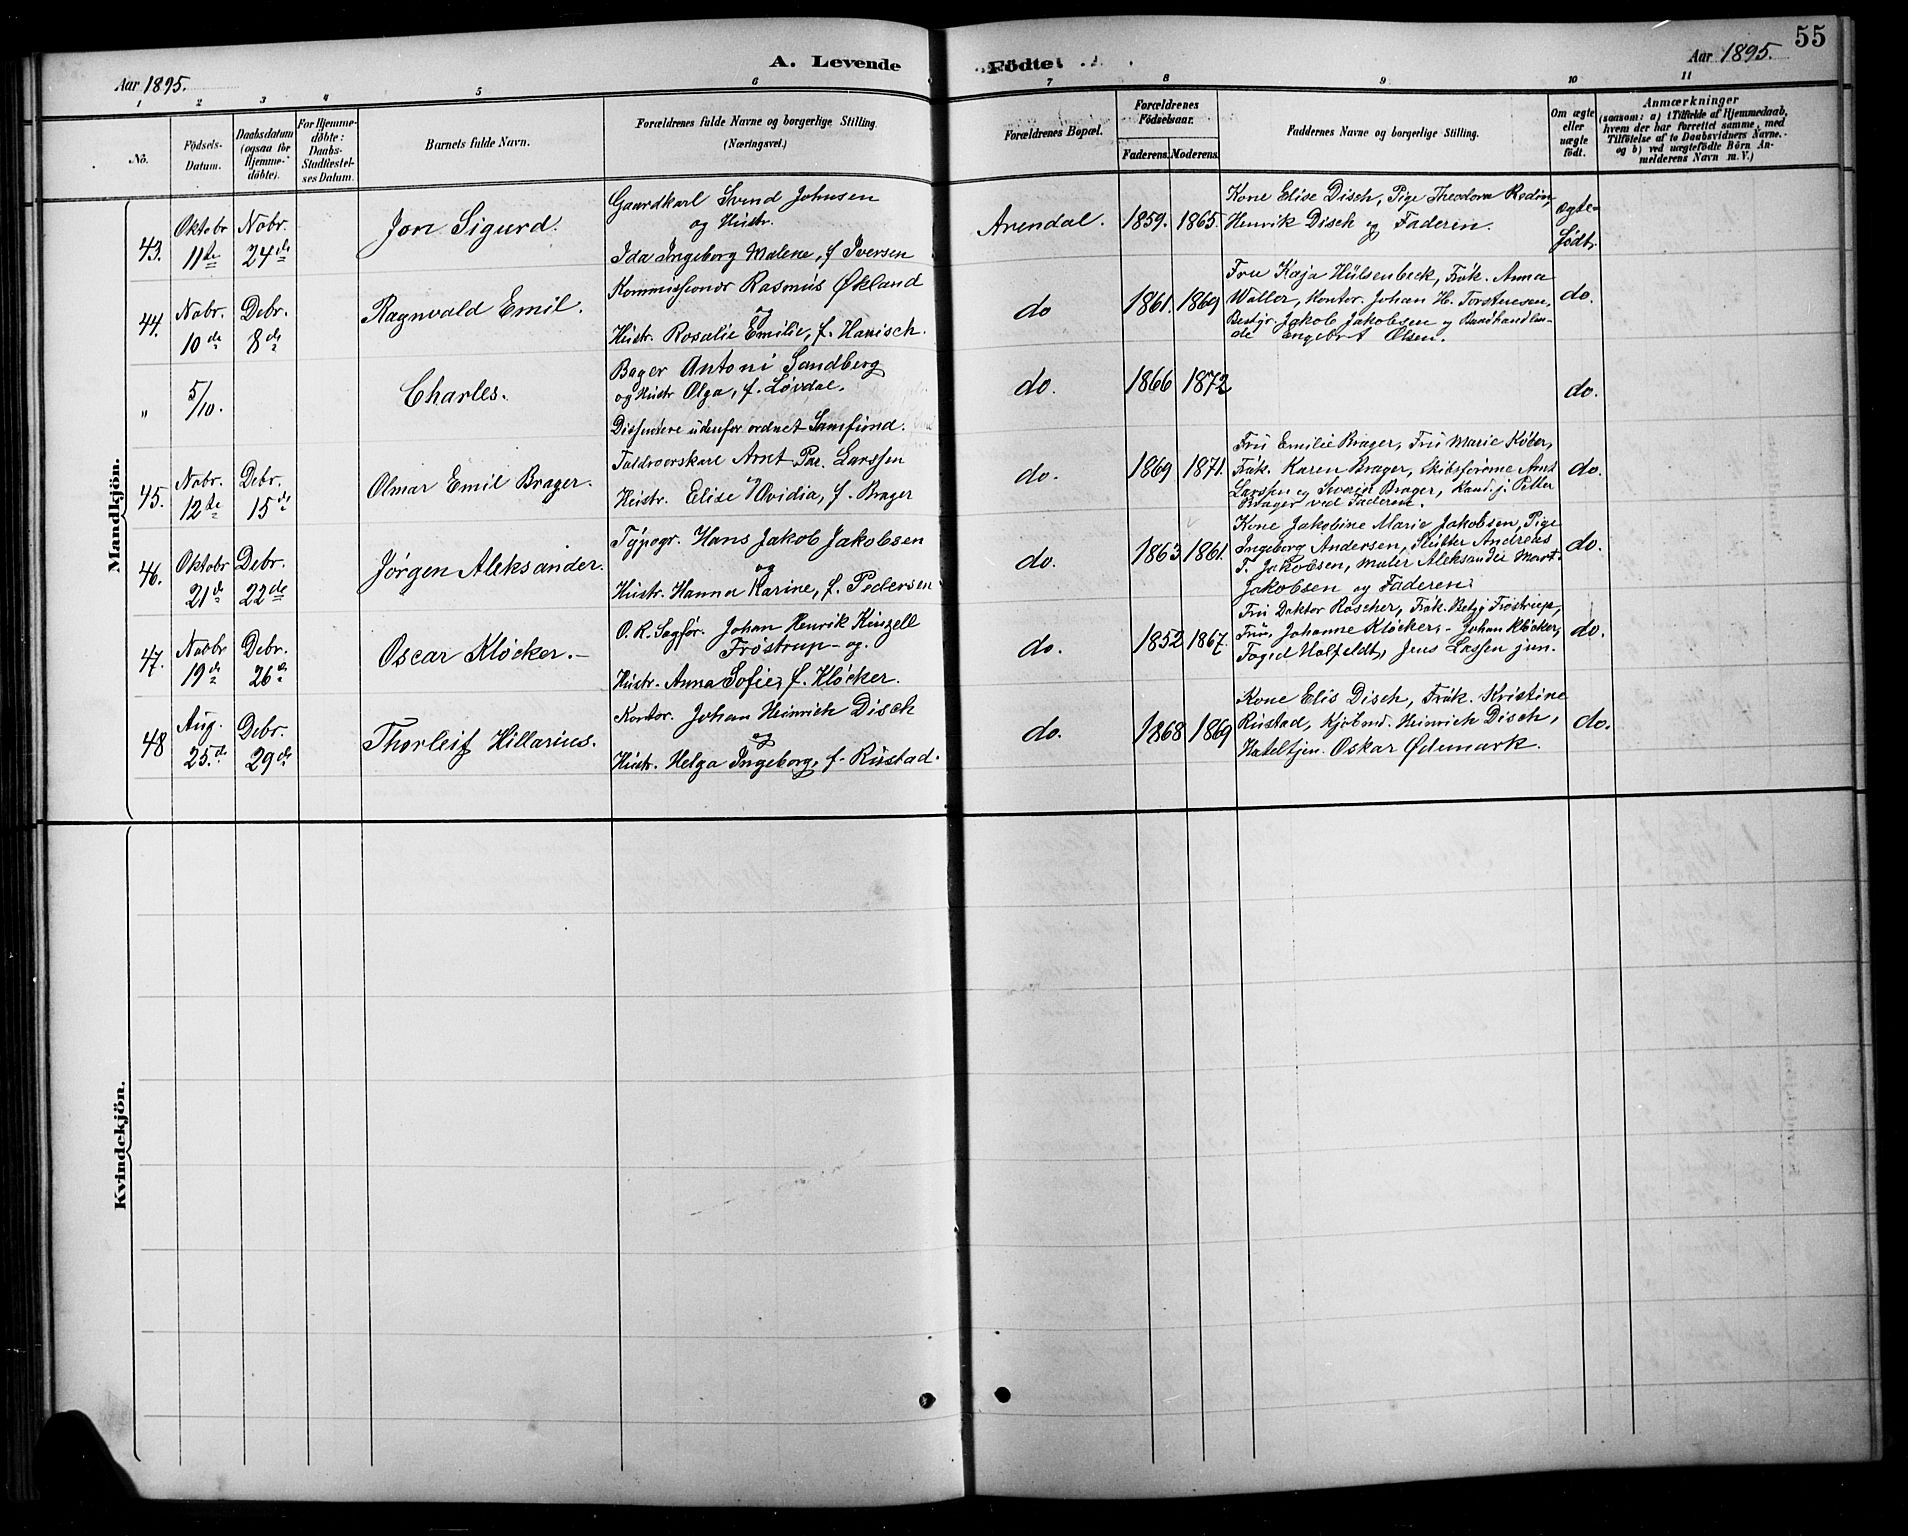 55
A. Levende Födte
Aar 1895.
Aar 1895.
1 2 3 4 5 6 7 8 9 10 11
No.
Födsels-
Datum.
Daabsdatum
(ogsaa for
Hjemme-
döbte).
For Hjemme-
döbte:
Daabs-
Stadfæstel-
ses Datum.
Barnets fulde Navn.
Forældrenes fulde Navne og borgerlige Stilling.
(Næringsvei.)
Forældrenes Bopæl.
Forældrenes
Födselsaar.
Faderens. Moderens.
Faddernes Navne og borgerlige Stilling.
Om ægte
eller
uægte
födt.
Anmærkninger
(saasom: a) i Tilfælde af Hjemmedaab,
hvem der har forrettet samme, med
Tilföielse af to Daabsvidners Navne.
og b) ved uægtefödte Börn An-
melderens Navn m. V.)
Mandkjön.
43.
Oktobr
11te
Nobr.
24de
Jon Sigurd.
Gaardkarl Svend Johnsen
og Hustr.
Ida Ingeborg Malene, f. Iversen
Arendal.
1859. 1865.
Kone Elise Disch, Pige Theodora Redin,
Henrik Disch og Faderen.
ægte-
født.
44.
Nobr.
10de
Debr.
8de
Ragnvald Emil.
Kommissionær Rasmus Økland
og
Hustr. Rosalie Emilie, f. Hanisch.
do
1861. 1869
Fru Kaja Hülsenbeck, Frøk. Anna
Waller, Kontor. Johan H. Torstensen,
Bestyr. Jakob Jakobsen og Brødhandlen-
de Engebrt Olsen.
do.
"
5/10.
Charles.
Bager Antoni Sandberg
og Hustr Olga, f. Løvdal.
Dissentere udenfor ordnet Samfund.
do.
1866 1872
do.
45.
Nobr.
12te
Debr.
15de
Olmar Emil Brager.
Toldroerskarl Arnt Par. Larssen
og
Hustr. Elise Ovidia, f. Brager
do.
1869 1871.
Fru Emilie Brager, Fru Marie Køber,
Frøk. Karen Brager, Skibsførerne Arnt
Larssen og Sverin Brager, Kand. j. Petter
Brager ved Faderen.
do.
46.
Oktobr
21de
Debr.
22de
Jørgen Aleksander.
Typogr. Hans Jakob Jakobsen
og
Hustr. Hanna Karine, f. Pedersen
do.
1863 1861.
Kone Jakobine Marie Jakobsen, Pige
Ingeborg Andersen, Slutter Andreas
T. Jakobsen, Maler Aleksander Mart.
Jakobsen og Faderen.
do.
47.
Novbr
19de
Debr.
26de
Oscar Kløcker.—
O. R. Sagfør. Johan Henrik Kinzell
Frøstrup- og
Hustr. Anna Sofie, f. Kløcker.
do.
1852 1867.
Fru Doktor Roscher, Frøk. Betzy Frøstrup,
Frøk. Johanne Kløcker, - Johan Kløcker,
Foged Holfeldt, Jens Lassen jun.
do.
48
Aug.
25de
Debr.
29de
Thorleif Hillarius.
Kontor. Johan Heinrich Disch
og
Hustr. Helga Ingeborg, f. Rustad.
do.
1868 1869
Kone Elis Disch, Frøk. Kristine
Rustad, Kjøbmd. Heinrich Disch,
Hoteltjen. Oskar Ødemark.
do.
Kvindekjön.